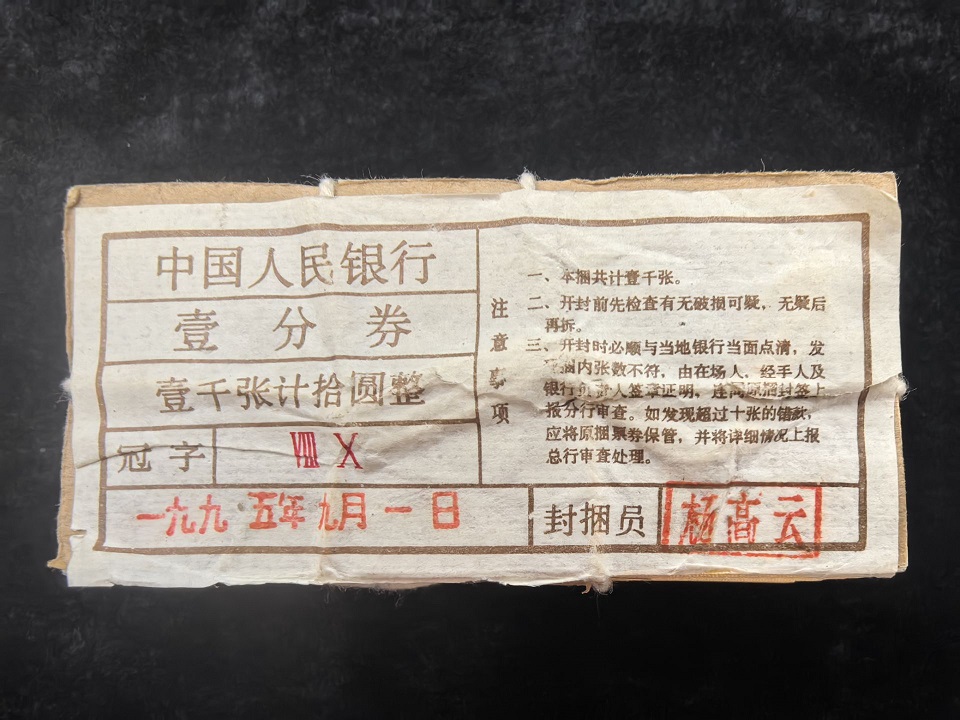 中国人民银行
壹分券
壹千张计拾圆整
冠字 Ⅷ Ⅹ
一九九五年九月一日
封捆员 杨高云
注意事项
一、本捆共计壹千张。
二、开封前先检查有无破损可疑，无疑后
再拆。
三、开封时必顺与当地银行当面点清，发
捆内张数不符，由在场人，经手人及
银行负责人签章证明，连同原捆封签上
报分行审查。如发现超过十张的错款，
应将原捆票券保管，并将详细情况上报
总行审查处理。